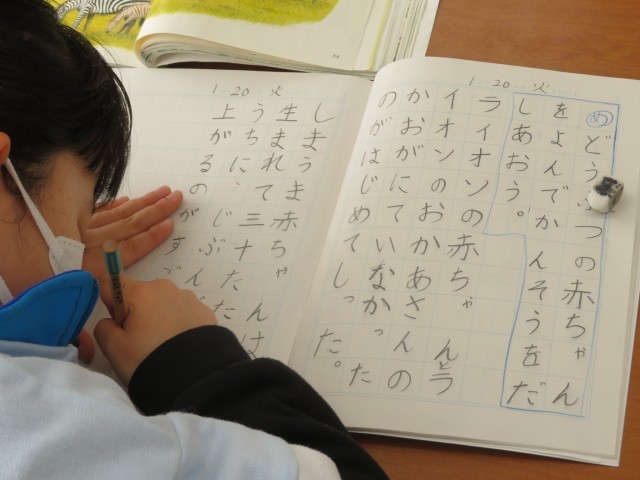 1 20 火
めどうぶつの赤ちゃん
をよんでかんそうをだ
しあおう。
ライオンの赤ちゃんとラ
イオンのおかあさんの
かおがにていなかった
のがはじめてしった。
1 20 火
しまうま赤ちゃんは
生まれて三十たた
うちに、じぶんで
上がるのがすご